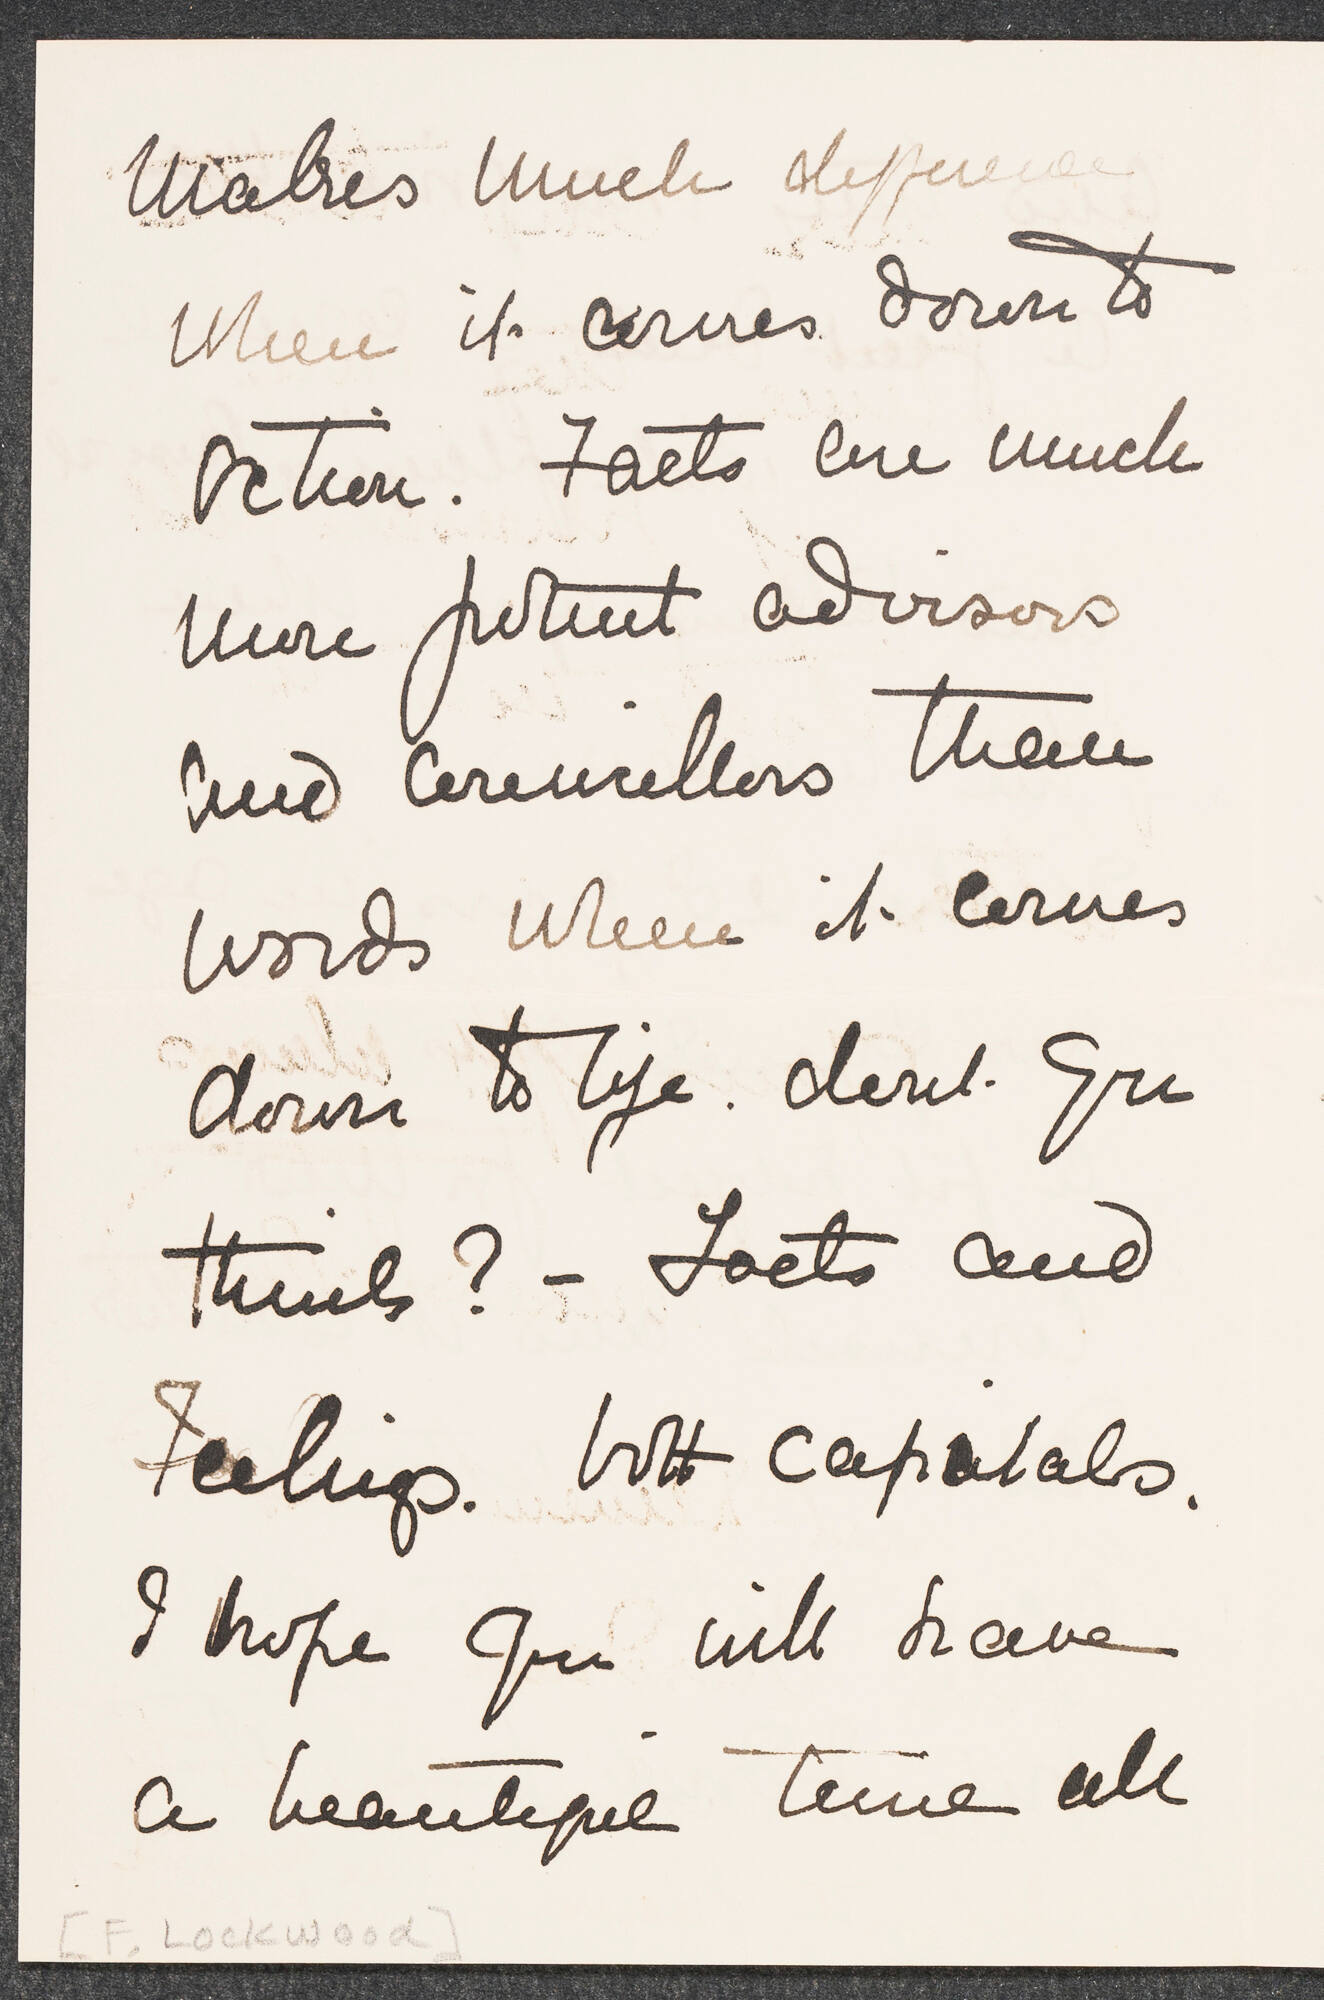 makes much difference
when it comes down to
action. Facts are much
more potent advisors
and councillors than
words when it comes
down to life. dont you
think? - Facts and
Feelings. both capitals.
I hope you will have
a beautiful time all
[F. Lockwood]